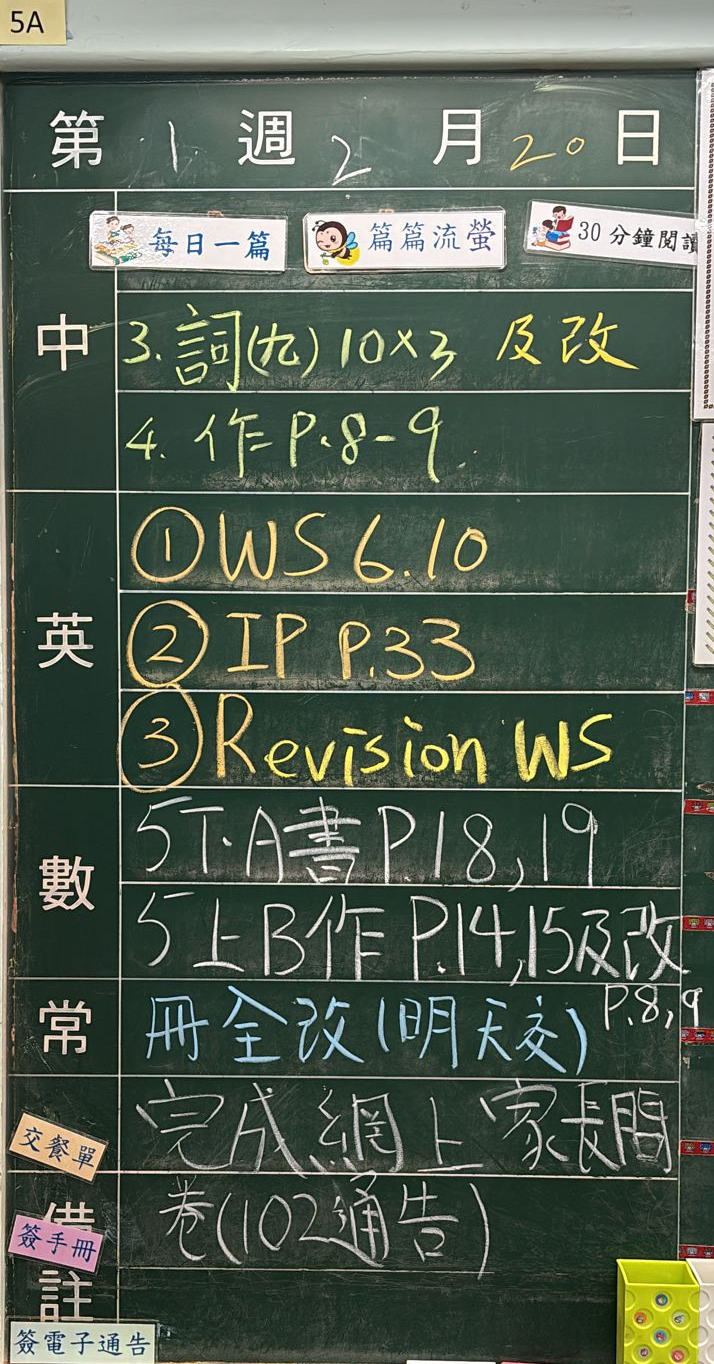 5A
第 1 週 2 月 20 日
每日一篇 篇篇流螢 30分鐘閱讀
中
3. 詞(九) 10×3 及改
4. 作 P.8-9
英
① WS 6.10
② IP P.33
③ Revision WS
數
5下A書 P.18,19
5上B作 P.14,15及改
P.8,9
常
冊全改(明天交)
完成網上家長問
卷(102通告)
交餐單
備註
簽手冊
簽電子通告